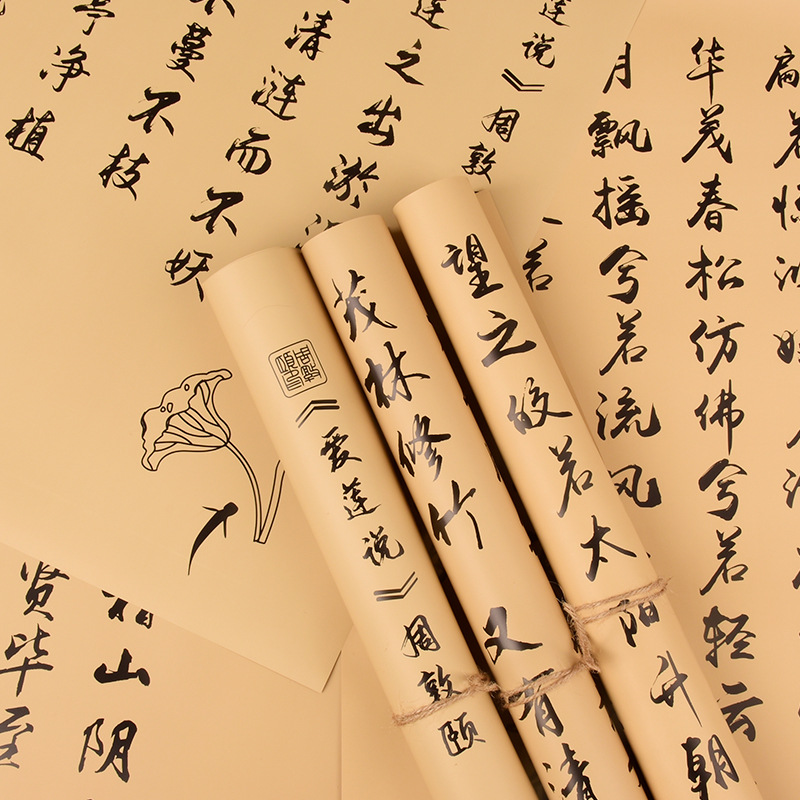 华茂春松仿佛兮若轻云
月飘摇兮若流风
若
莲说》周敦
莲之出淤
清涟而不妖
不蔓不枝
亭净植
望之皎若太阳升朝
茂林修竹又有清
《爱莲说》周敦颐
山阴
贤毕至